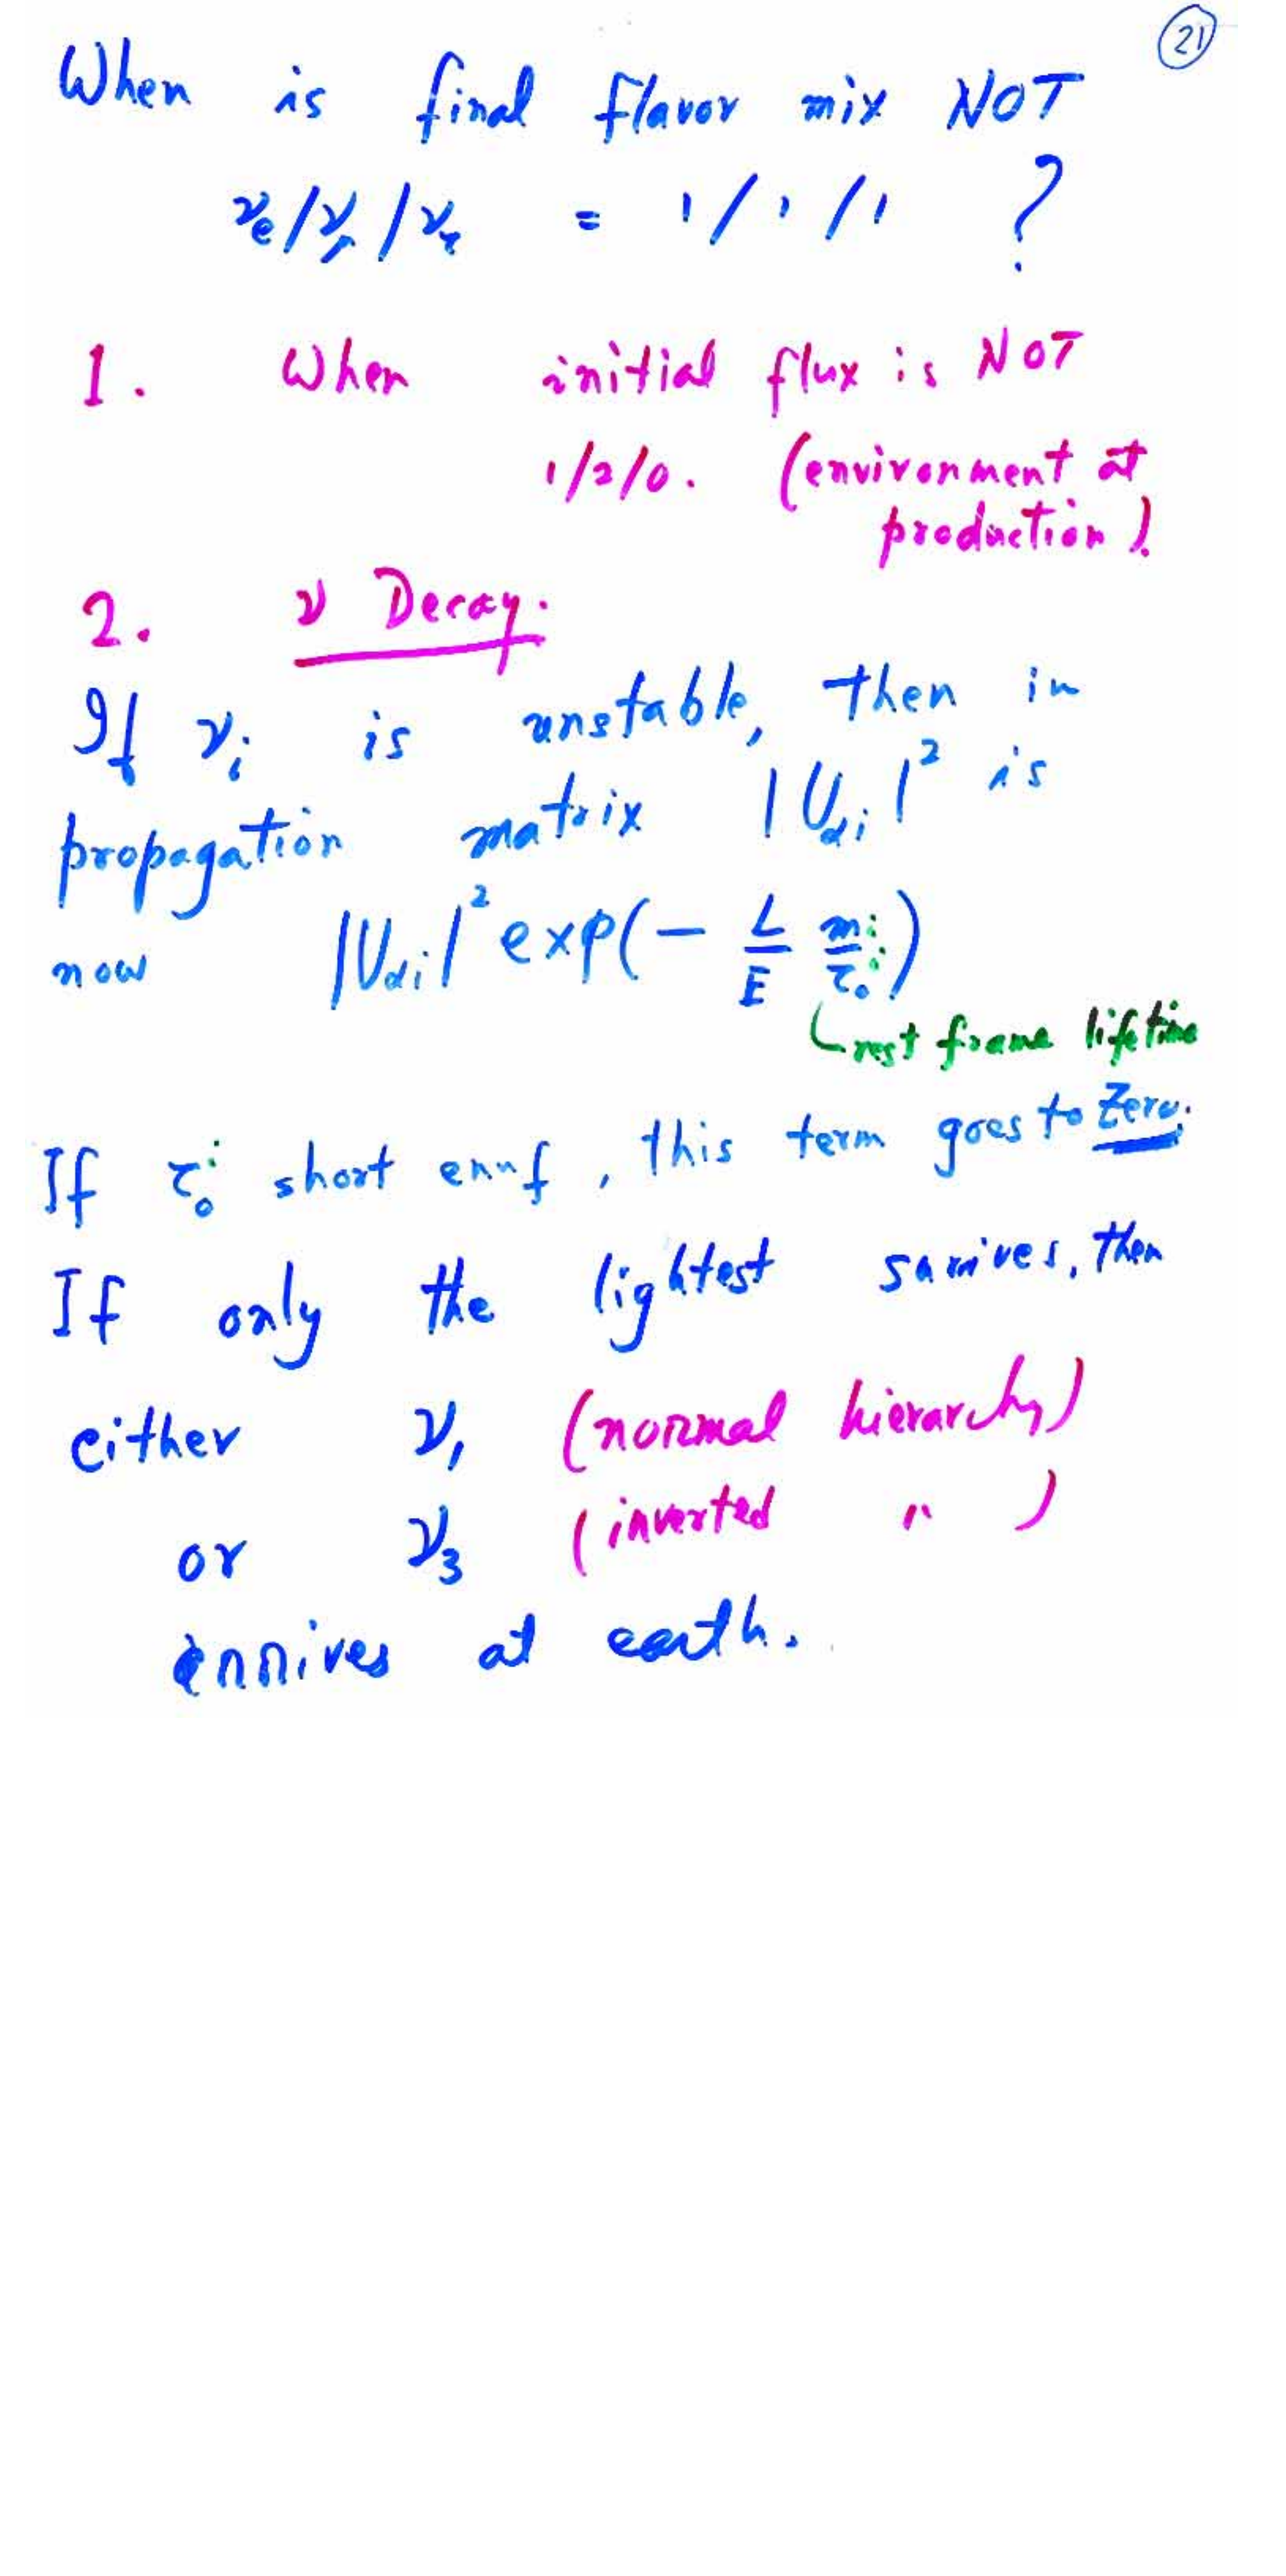 21
When is final flavor mix NOT
νe/νμ/ντ = 1/1/1 ?
1. When initial flux is NOT
1/2/0. (environment at
production).
2. ν Decay.
If νi is unstable, then in
propagation matrix |Uαi|² is
now |Uαi|² exp(- L/E mi/τ₀i)
rest frame lifetime
If τ₀i short enuf, this term goes to Zero.
If only the lightest survives, then
either ν1 (normal hierarchy)
or ν3 (inverted " )
arrives at earth.